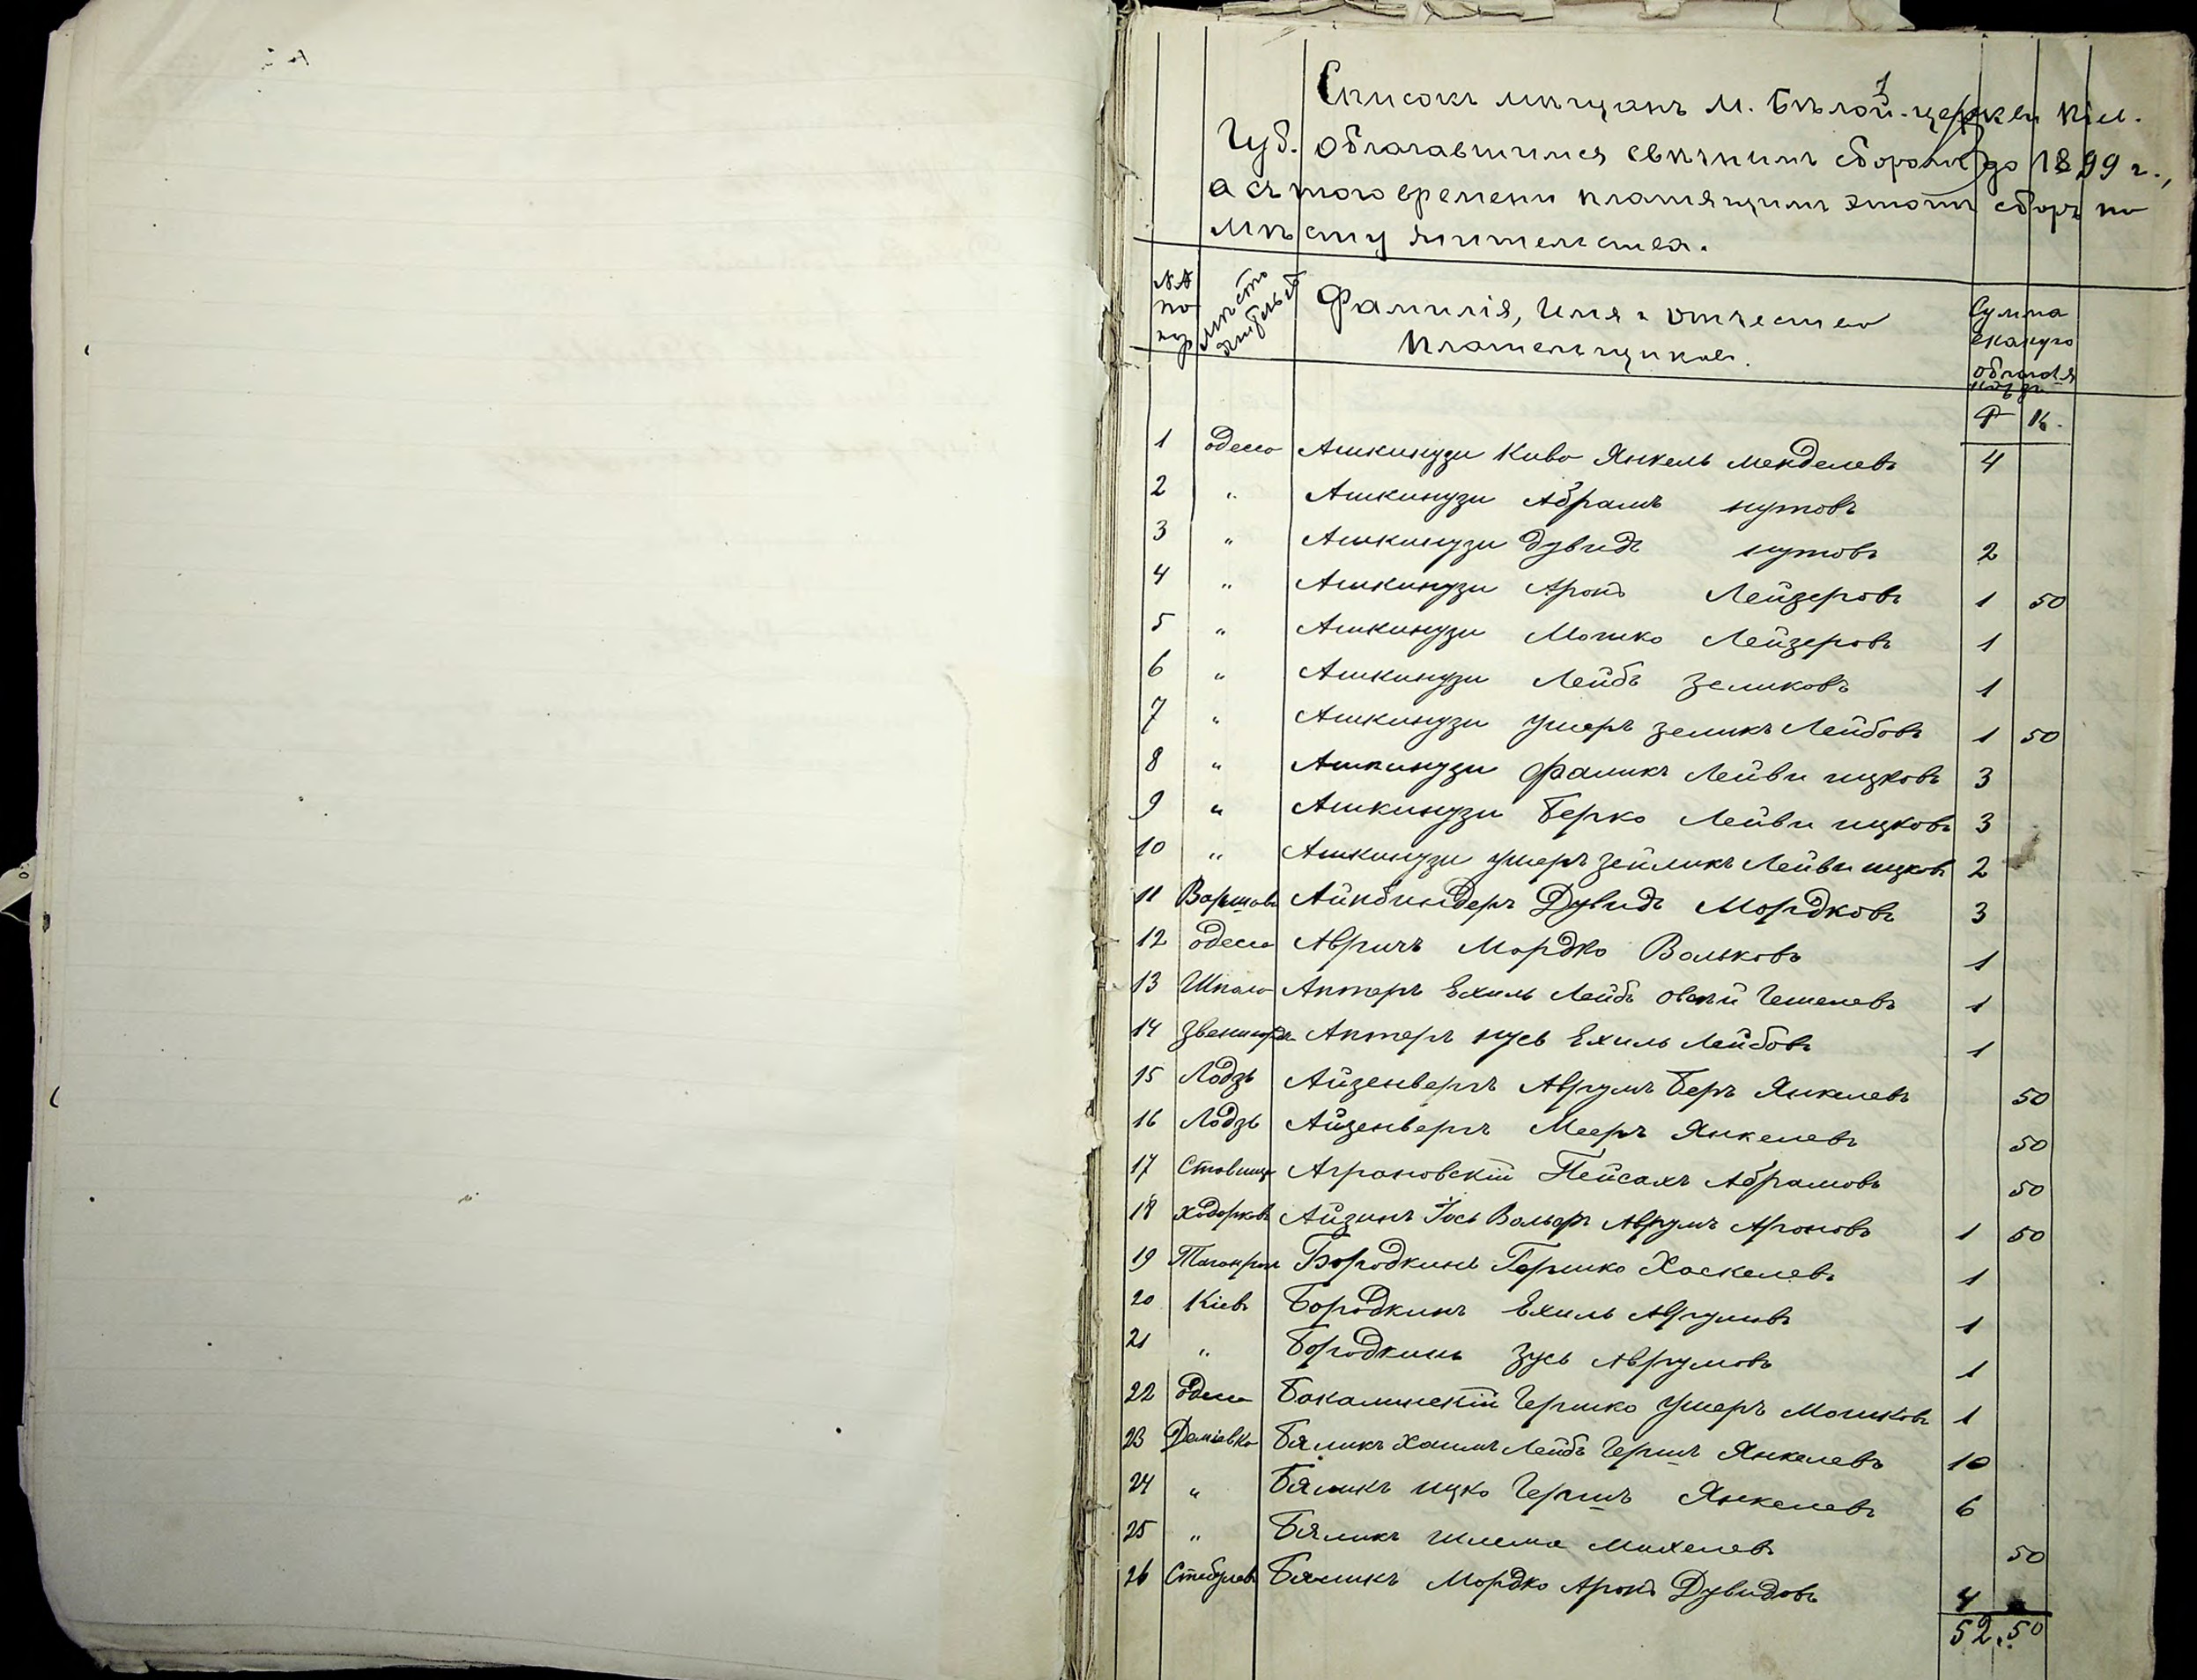 1
Списокъ мѣщанъ м. Бѣлой-церкви Кіев.
Губ. облагавшимся свѣчнымъ сборомъ до 1899 г.,
а съ того времени платящимъ этотъ сборъ по
мѣсту жительства.
№№ по пор. Мѣсто жительс. Фамилія, Имя и отчество плательщиковъ. Сумма какую обложенъ
Р К.
1 Одесса Ашкинузи Кива Янкель Менделевъ 4
2 " Ашкинузи Абрамъ Нутовъ
3 " Ашкинузи Дувидъ Нутовъ 2
4 " Ашкинузи Аронъ Лейзеровъ 1 50
5 " Ашкинузи Мошко Лейзеровъ 1
6 " Ашкинузи Лейбъ Зеликовъ 1
7 " Ашкинузи Ушеръ Зеликъ Лейбовъ 1 50
8 " Ашкинузи Фаликъ Лейви Ицковъ 3
9 " Ашкинузи Берко Лейви Ицковъ 3
10 " Ашкинузи Ушеръ Зейликъ Лейви Ицковъ 2
11 Варшава Айнбиндеръ Дувидъ Мордковъ 3
12 Одесса Авричъ Мордко Вольковъ 1
13 Шпола Аптеръ Ехиль Лейбъ Овсѣй Гешелевъ 1
14 Звенигор. Аптеръ Нусь Ехиль Лейбовъ 1
15 Лодзь Айзенвергъ Аврумъ Беръ Янкелевъ 50
16 Лодзь Айзенвергъ Мееръ Янкелевъ 50
17 Ставище Аграновскій Пейсахъ Абрамовъ 50
18 Ходорковъ Айзинъ Іось Вольфъ Аврумъ Ароновъ 1 50
19 Таганрогъ Бородкинъ Гершко Хаскелевъ 1
20 Кіевъ Бородкинъ Ехиль Аврумовъ 1
21 " Бородкинъ Зусь Аврумовъ 1
22 Одесса Бакалинскій Гершко Ушеръ Мошковъ 1
23 Деміевка Бяликъ Хаимъ Лейбъ Гершъ Янкелевъ 10
24 " Бяликъ Ицко Гершъ Янкелевъ 6
25 " Бяликъ Шлема Михелевъ 50
26 Стеблевъ Бяликъ Мордко Аронъ Дувидовъ 4
52.50